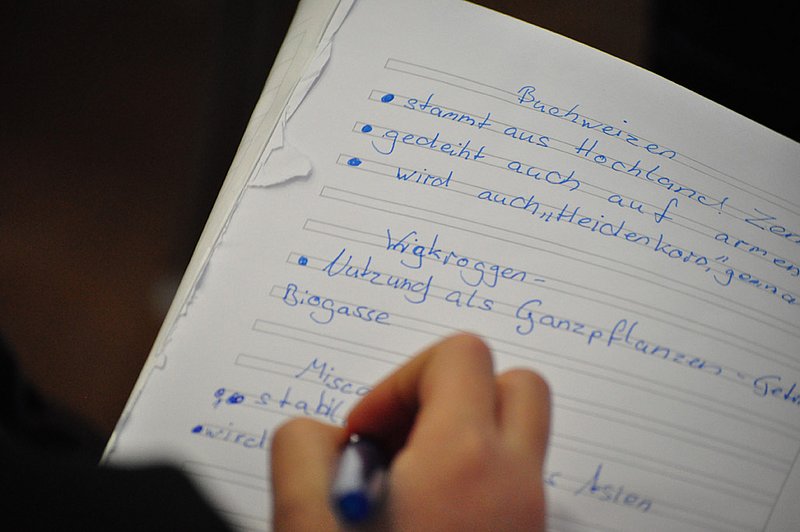 Buchweizen
• stammt aus Hochland!
• gedeiht auch auf armen
• wird auch „Heidenkorn“, genna
Wigkroggen-
• Nutzung als Ganzpflanzen-
Biogasse
Misc
• stabil
• wird
Asien